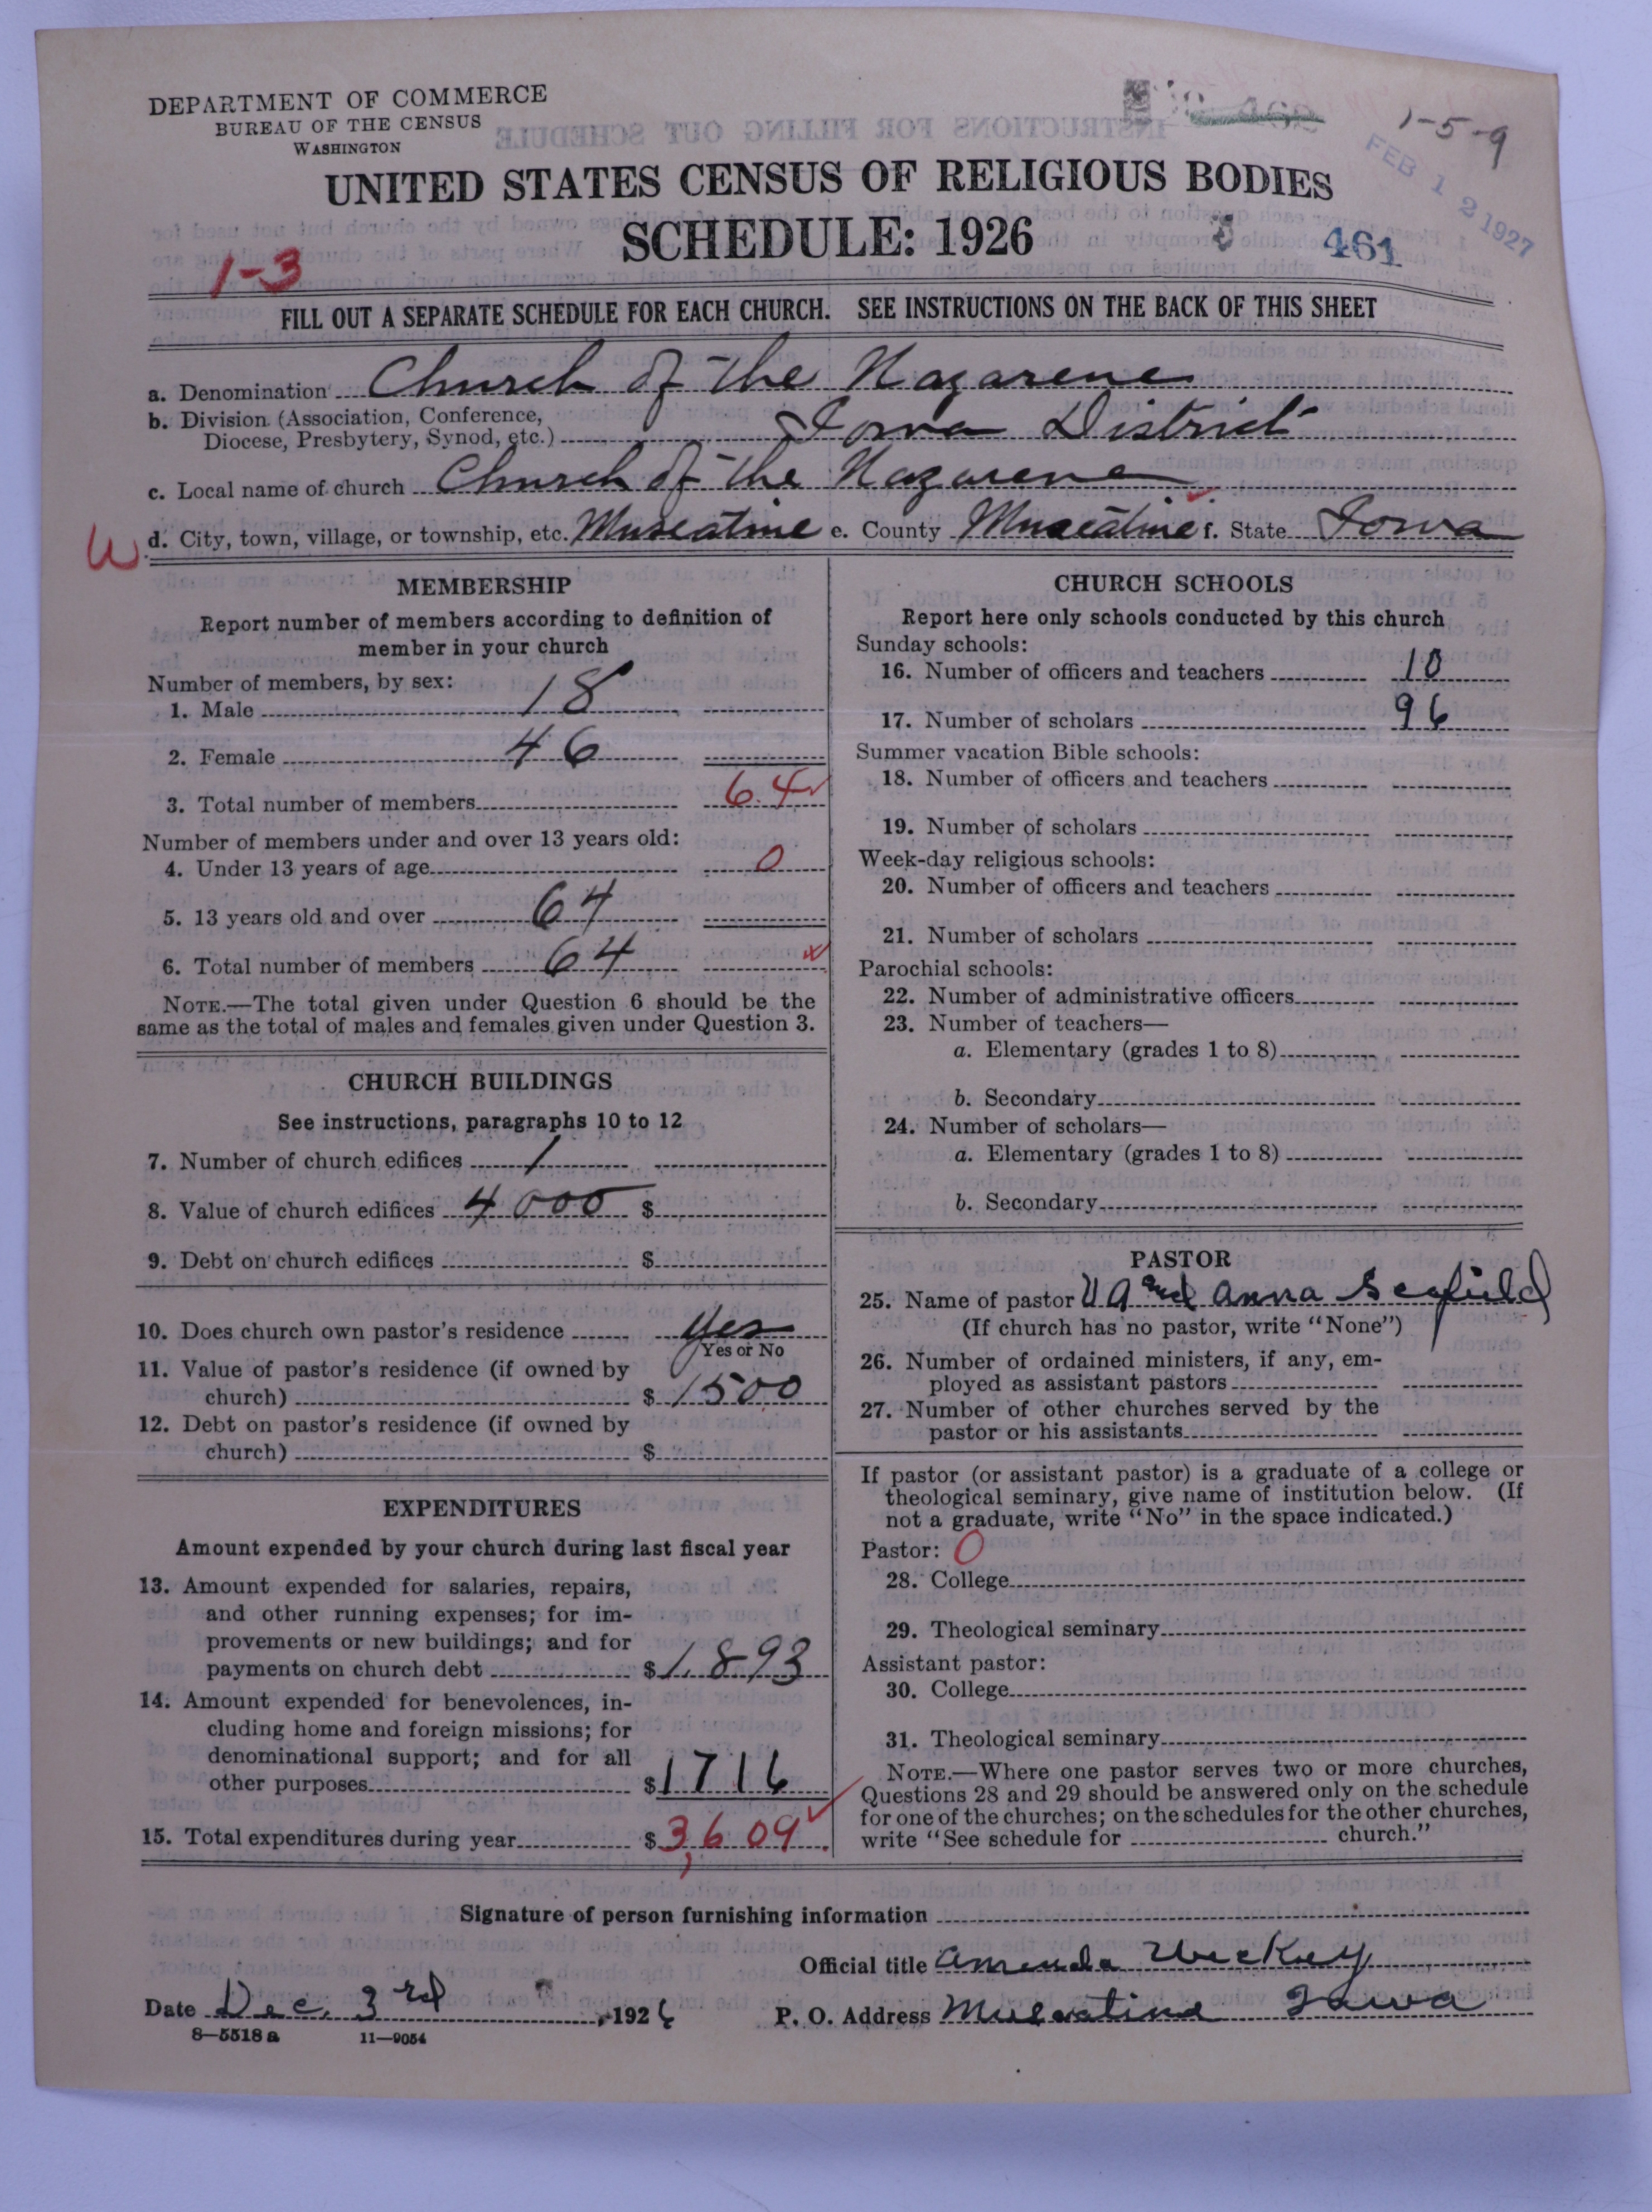 DEPARTMENT OF COMMERCE
BUREAU OF THE CENSUS
WASHINGTON
1-5-9
FEB 12 1927
UNITED STATES CENSUS OF RELIGIOUS BODIES
SCHEDULE: 1926
461
1-3
FILL OUT A SEPARATE SCHEDULE FOR EACH CHURCH. SEE INSTRUCTIONS ON THE BACK OF THIS SHEET
a. Denomination Church of the Nazarene
b. Division (Association, Conference,
Diocese, Presbytery, Synod, etc.) Iowa District
c. Local name of church Church of the Nazarene
W d. City, town, village, or township, etc. Muscatine e. County Muscatine f. State Iowa
MEMBERSHIP
Report number of members according to definition of
member in your church
Number of members, by sex:
1. Male 18
2. Female 46
3. Total number of members 64
Number of members under and over 13 years old:
4. Under 13 years of age 0
5. 13 years old and over 64
6. Total number of members 64
NOTE.—The total given under Question 6 should be the
same as the total of males and females given under Question 3.
CHURCH BUILDINGS
See instructions, paragraphs 10 to 12
7. Number of church edifices 1
8. Value of church edifices 4000 $
9. Debt on church edifices $
10. Does church own pastor's residence Yes
Yes or No
11. Value of pastor's residence (if owned by
church) $ 1500
12. Debt on pastor's residence (if owned by
church) $
EXPENDITURES
Amount expended by your church during last fiscal year
13. Amount expended for salaries, repairs,
and other running expenses; for im-
provements or new buildings; and for
payments on church debt $ 1893
14. Amount expended for benevolences, in-
cluding home and foreign missions; for
denominational support; and for all
other purposes $ 1716
15. Total expenditures during year $ 3,609
CHURCH SCHOOLS
Report here only schools conducted by this church
Sunday schools:
16. Number of officers and teachers 10
17. Number of scholars 96
Summer vacation Bible schools:
18. Number of officers and teachers
19. Number of scholars
Week-day religious schools:
20. Number of officers and teachers
21. Number of scholars
Parochial schools:
22. Number of administrative officers
23. Number of teachers—
a. Elementary (grades 1 to 8)
b. Secondary
24. Number of scholars—
a. Elementary (grades 1 to 8)
b. Secondary
PASTOR
25. Name of pastor and Anna
(If church has no pastor, write "None")
26. Number of ordained ministers, if any, em-
ployed as assistant pastors
27. Number of other churches served by the
pastor or his assistants
If pastor (or assistant pastor) is a graduate of a college or
theological seminary, give name of institution below. (If
not a graduate, write "No" in the space indicated.)
Pastor: 0
28. College
29. Theological seminary
Assistant pastor:
30. College
31. Theological seminary
NOTE.—Where one pastor serves two or more churches,
Questions 28 and 29 should be answered only on the schedule
for one of the churches; on the schedules for the other churches,
write "See schedule for church."
Signature of person furnishing information
Official title Amanda
Date Dec. 3rd, 1926 P. O. Address Muscatine Iowa
8—5518 a 11—9054